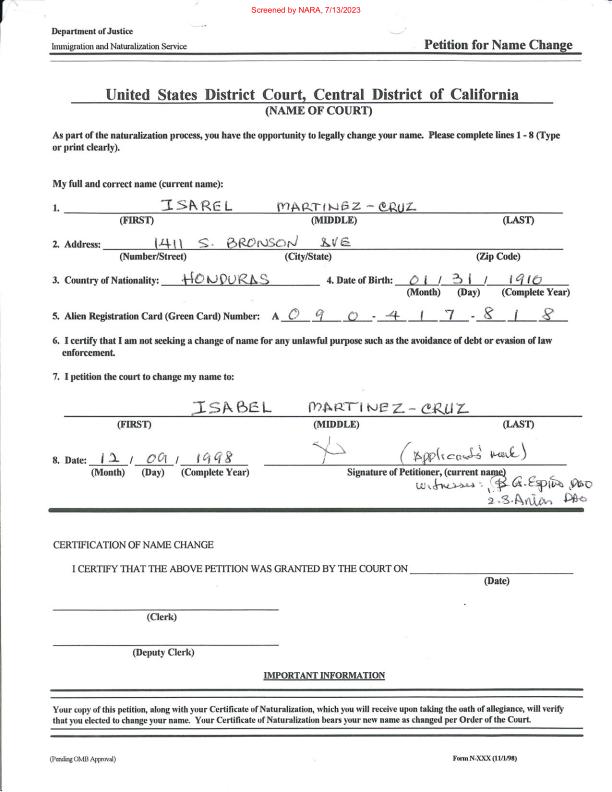 Screened by NARA, 7/13/2023
Department of Justice
Immigration and Naturalization Service Petition for Name Change
United States District Court, Central District of California
(NAME OF COURT)
As part of the naturalization process, you have the opportunity to legally change your name. Please complete lines 1 - 8 (Type
or print clearly).
My full and correct name (current name):
1. ISAREL MARTINEZ-CRUZ
(FIRST) (MIDDLE) (LAST)
2. Address: 1411 S. BRONSON AVE
(Number/Street) (City/State) (Zip Code)
3. Country of Nationality: HONDURAS 4. Date of Birth: 01 / 31 / 1910
(Month) (Day) (Complete Year)
5. Alien Registration Card (Green Card) Number: A 0 9 0 - 4 1 7 - 8 1 8
6. I certify that I am not seeking a change of name for any unlawful purpose such as the avoidance of debt or evasion of law
enforcement.
7. I petition the court to change my name to:
ISABEL MARTINEZ-CRUZ
(FIRST) (MIDDLE) (LAST)
8. Date: 12 / 09 / 1998 (Applicant's mark)
(Month) (Day) (Complete Year) Signature of Petitioner, (current name)
Witnesses: 1. B.G. DAO
2. S. DAO
CERTIFICATION OF NAME CHANGE
I CERTIFY THAT THE ABOVE PETITION WAS GRANTED BY THE COURT ON
(Date)
(Clerk)
(Deputy Clerk)
IMPORTANT INFORMATION
Your copy of this petition, along with your Certificate of Naturalization, which you will receive upon taking the oath of allegiance, will verify
that you elected to change your name. Your Certificate of Naturalization bears your new name as changed per Order of the Court.
(Pending OMB Approval) Form N-XXX (11/1/98)